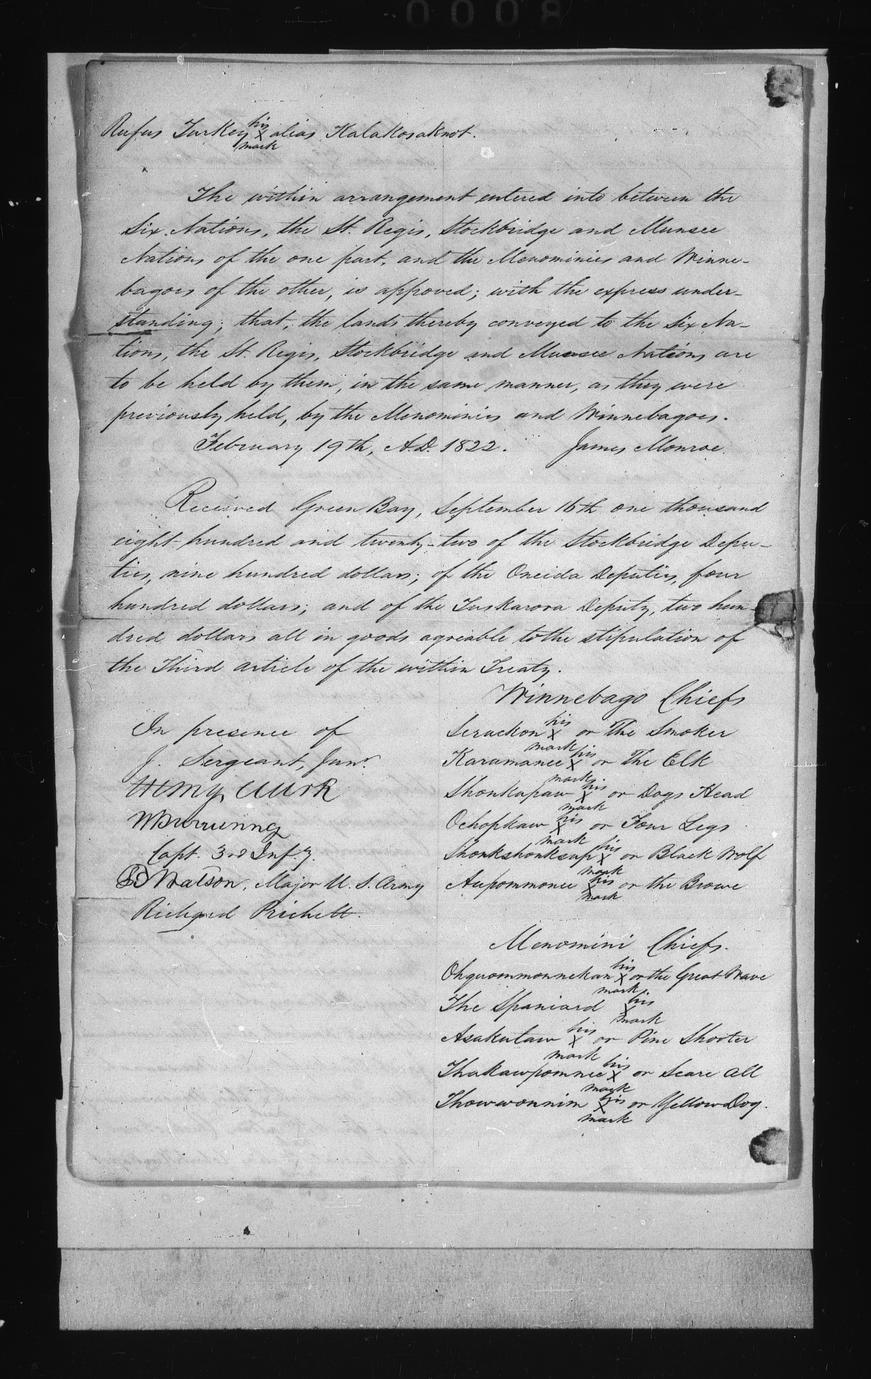 0008
Rufus Turkey his X mark alias Kalakosaknot.
The within arrangement entered into between the
Six Nations, the St. Regis, Stockbridge and Munsee
Nations of the one part, and the Menominies and Winne-
bagoes of the other, is approved; with the express under-
standing; that, the lands thereby conveyed to the Six Na-
tions, the St. Regis, Stockbridge and Munsee Nations are
to be held by them, in the same manner, as they were
previously held, by the Menominies and Winnebagoes.
February 19th, A.D. 1822. James Monroe.
Received Green Bay, September 16th one thousand
eight hundred and twenty-two of the Stockbridge Depu-
ties, nine hundred dollars; of the Oneida Deputies, four
hundred dollars; and of the Tuskarora Deputy, two hun-
dred dollars all in goods agreable to the stipulation of
the Third article of the within Treaty.
Winnebago Chiefs
In presence of
J. Sergeant, Junr.
Henry
Capt. 3rd Inf'y.
Watson, Major U. S. Army
Richard Prickett
Serachon his X mark or The Smoker
Karamanee his X mark or The Elk
Shonkapaw his X mark or Dogs Head
Ochopkaw his X mark or Four Legs
Shonkshonkcap his X mark or Black Wolf
Aupommonee his X mark or the Browe
Menomini Chiefs.
Ohquommonnekan his X mark or the Great Wave
The Spaniard his X mark
Asakutaw his X mark or Pine Shooter
Thakawpomnee his X mark or Scare All
Thowwonnim his X mark or Yellow Dog.